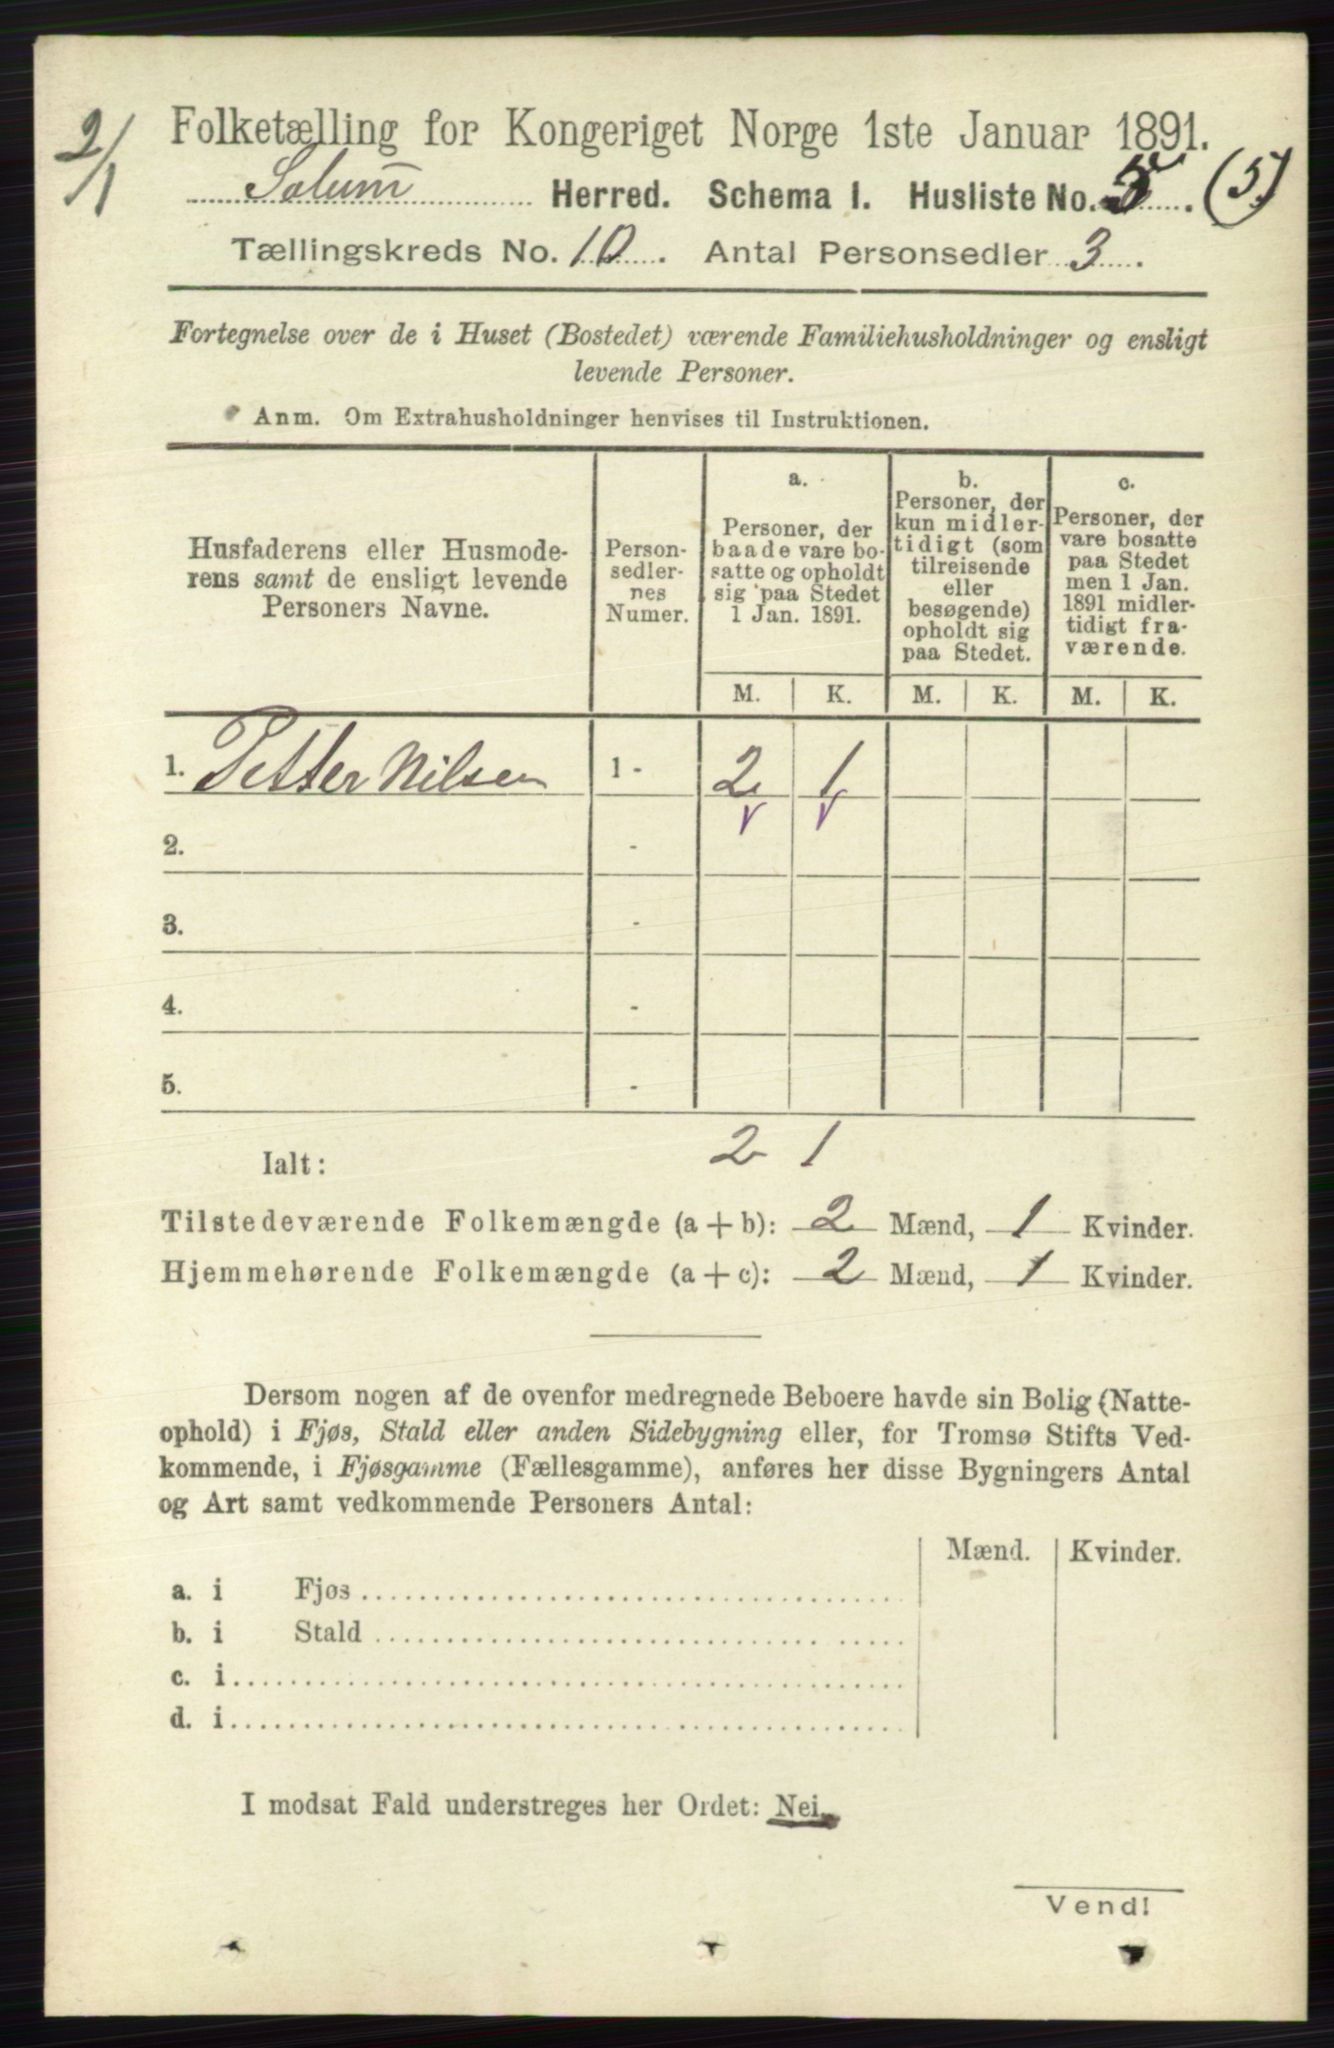 2/1
Folketælling for Kongeriget Norge 1ste Januar 1891.
Solum Herred. Schema I. Husliste No. 5. (5)
Tællingskreds No. 10. Antal Personsedler 3.
Fortegnelse over de i Huset (Bostedet) værende Familiehusholdninger og ensligt
levende Personer.
Anm. Om Extrahusholdninger henvises til Instruktionen.
Husfaderens eller Husmode-
rens samt de ensligt levende
Personers Navne.
Person-
sedler-
nes
Numer.
a.
Personer, der
baade vare bo-
satte og opholdt
sig paa Stedet
1 Jan. 1891.
b.
Personer, der
kun midler-
tidigt (som
tilreisende
eller
besøgende)
opholdt sig
paa Stedet.
c.
Personer, der
vare bosatte
paa Stedet
men 1 Jan.
1891 midler-
tidigt fra-
værende.
M. K. M. K. M. K.
1. Petter Nilsen 1 - 2 1
2. -
3. -
4. -
5. -
Ialt: 2 1
Tilstedeværende Folkemængde (a + b): 2 Mænd, 1 Kvinder.
Hjemmehørende Folkemængde (a + c): 2 Mænd, 1 Kvinder.
Dersom nogen af de ovenfor medregnede Beboere havde sin Bolig (Natte-
ophold) i Fjøs, Stald eller anden Sidebygning eller, for Tromsø Stifts Ved-
kommende, i Fjøsgamme (Fællesgamme), anføres her disse Bygningers Antal
og Art samt vedkommende Personers Antal:
Mænd. Kvinder.
a. i Fjøs
b. i Stald
c. i
d. i
I modsat Fald understreges her Ordet: Nei.
Vend!